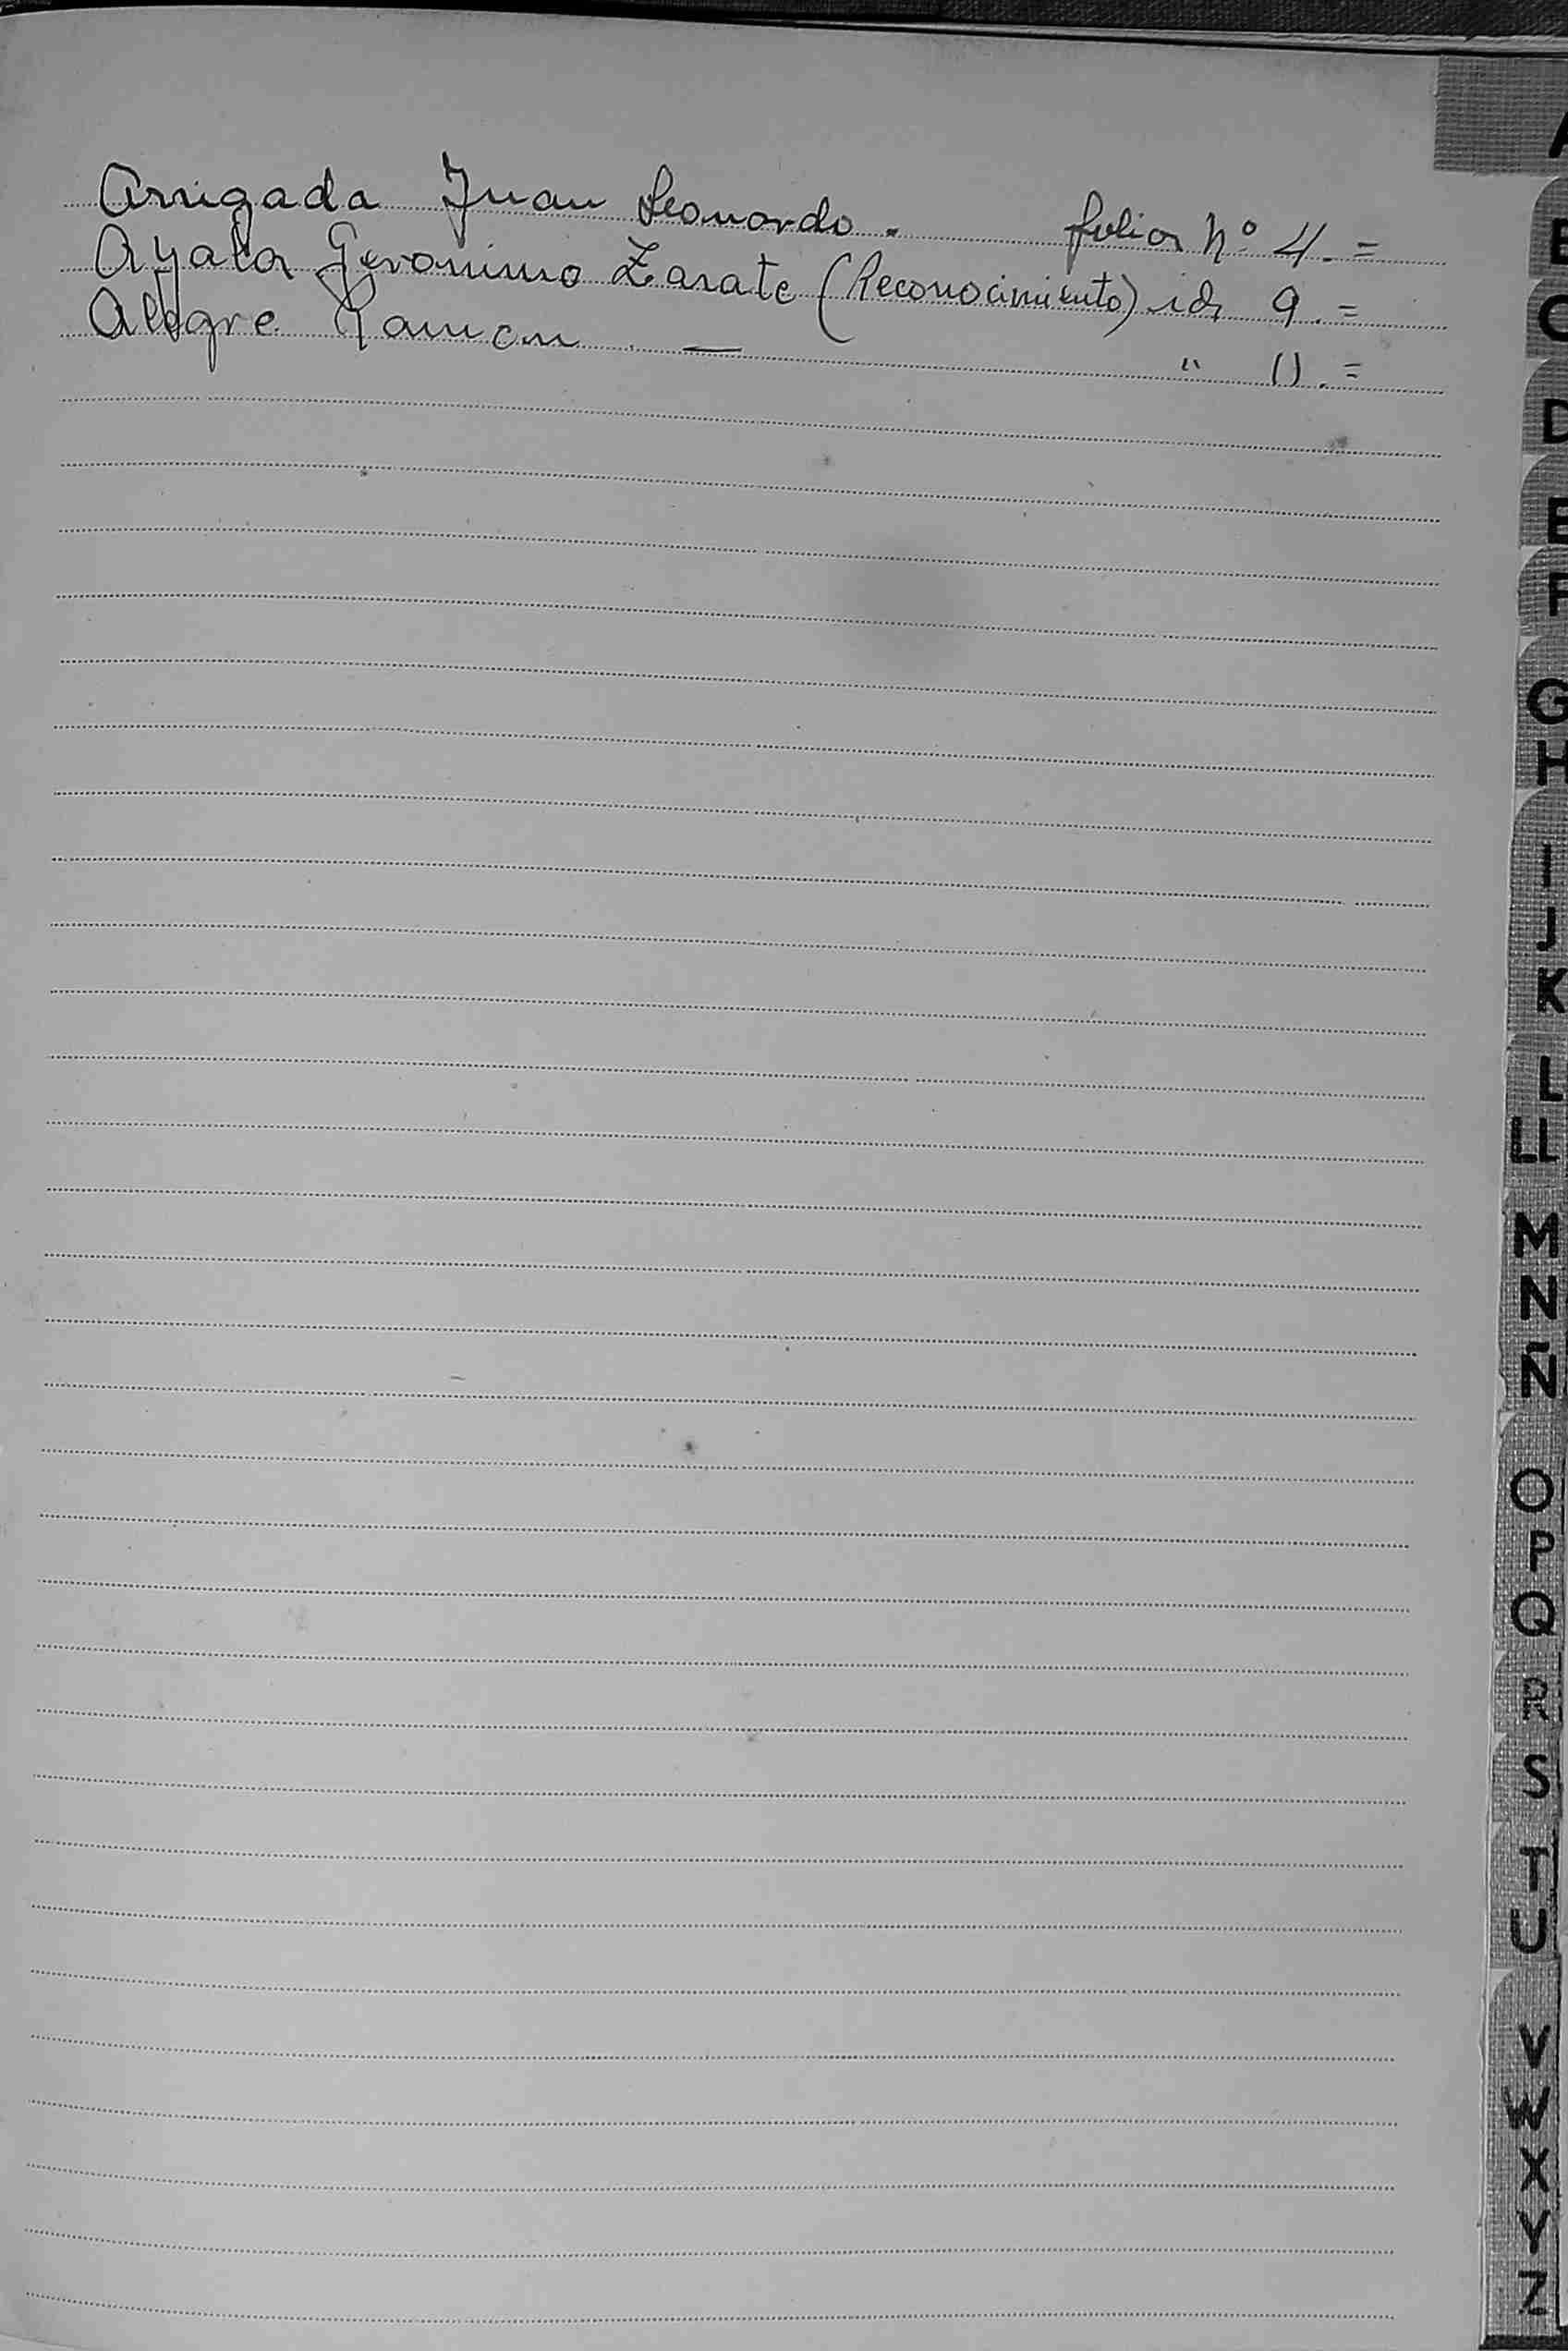 Arrigada Juan Leonardo. folios Nº 4.=
Ayala Geronimo Zarate (Reconocimiento) id, 9.=
Alegre Ramon. — " 11.=
A
B
C
D
E
F
G
H
I
J
K
L
LL
M
N
Ñ
O
P
Q
R
S
T
U
V
W
X
Y
Z